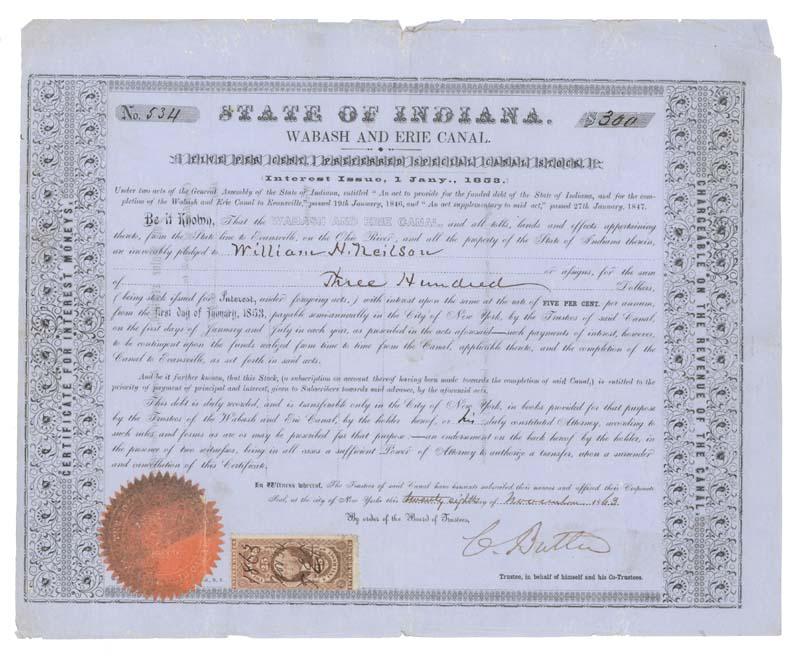 No. 534
STATE OF INDIANA.
$300
WABASH AND ERIE CANAL.
FIVE PER CENT. PREFERRED SPECIAL CANAL STOCK.
(Interest Issue, 1 Jany., 1853.)
Under two acts of the General Assembly of the State of Indiana, entitled "An act to provide for the funded debt of the State of Indiana, and for the com-
pletion of the Wabash and Erie Canal to Evansville," passed 19th January, 1846, and "An act supplementary to said act," passed 27th January, 1847.
Be it Known, That the WABASH AND ERIE CANAL, and all tolls, lands and effects appertaining
thereto, from the State line to Evansville, on the Ohio River, and all the property of the State of Indiana therein,
are irrevocably pledged to William H. Neilson
or assigns, for the sum
of Three Hundred Dollars,
(being stock issued for Interest, under foregoing acts,) with interest upon the same at the rate of FIVE PER CENT. per annum,
from the first day of January, 1853, payable semi-annually in the City of New York, by the Trustees of said Canal,
on the first days of January and July in each year, as prescribed in the acts aforesaid—such payments of interest, however,
to be contingent upon the funds realized from time to time from the Canal, applicable thereto, and the completion of the
Canal to Evansville, as set forth in said acts.
And be it further known, that this Stock, (a subscription on account thereof having been made towards the completion of said Canal,) is entitled to the
priority of payment of principal and interest, given to Subscribers towards said advance, by the aforesaid acts.
This debt is duly recorded, and is transferable only in the City of New York, in books provided for that purpose
by the Trustees of the Wabash and Erie Canal, by the holder hereof, or his duly constituted Attorney, according to
such rules and forms as are or may be prescribed for that purpose,—an endorsement on the back hereof by the holder, in
the presence of two witnesses, being in all cases a sufficient Power of Attorney to authorize a transfer, upon a surrender
and cancellation of this Certificate.
In Witness whereof, The Trustees of said Canal have hereunto subscribed their names and affixed their Corporate
Seal, at the city of New York this twenty eighth day of November 1863
By order of the Board of Trustees,
C. Butler
Trustee, in behalf of himself and his Co-Trustees.
CERTIFICATE FOR INTEREST MONEYS.
CHARGEABLE ON THE REVENUE OF THE CANAL
1863
25